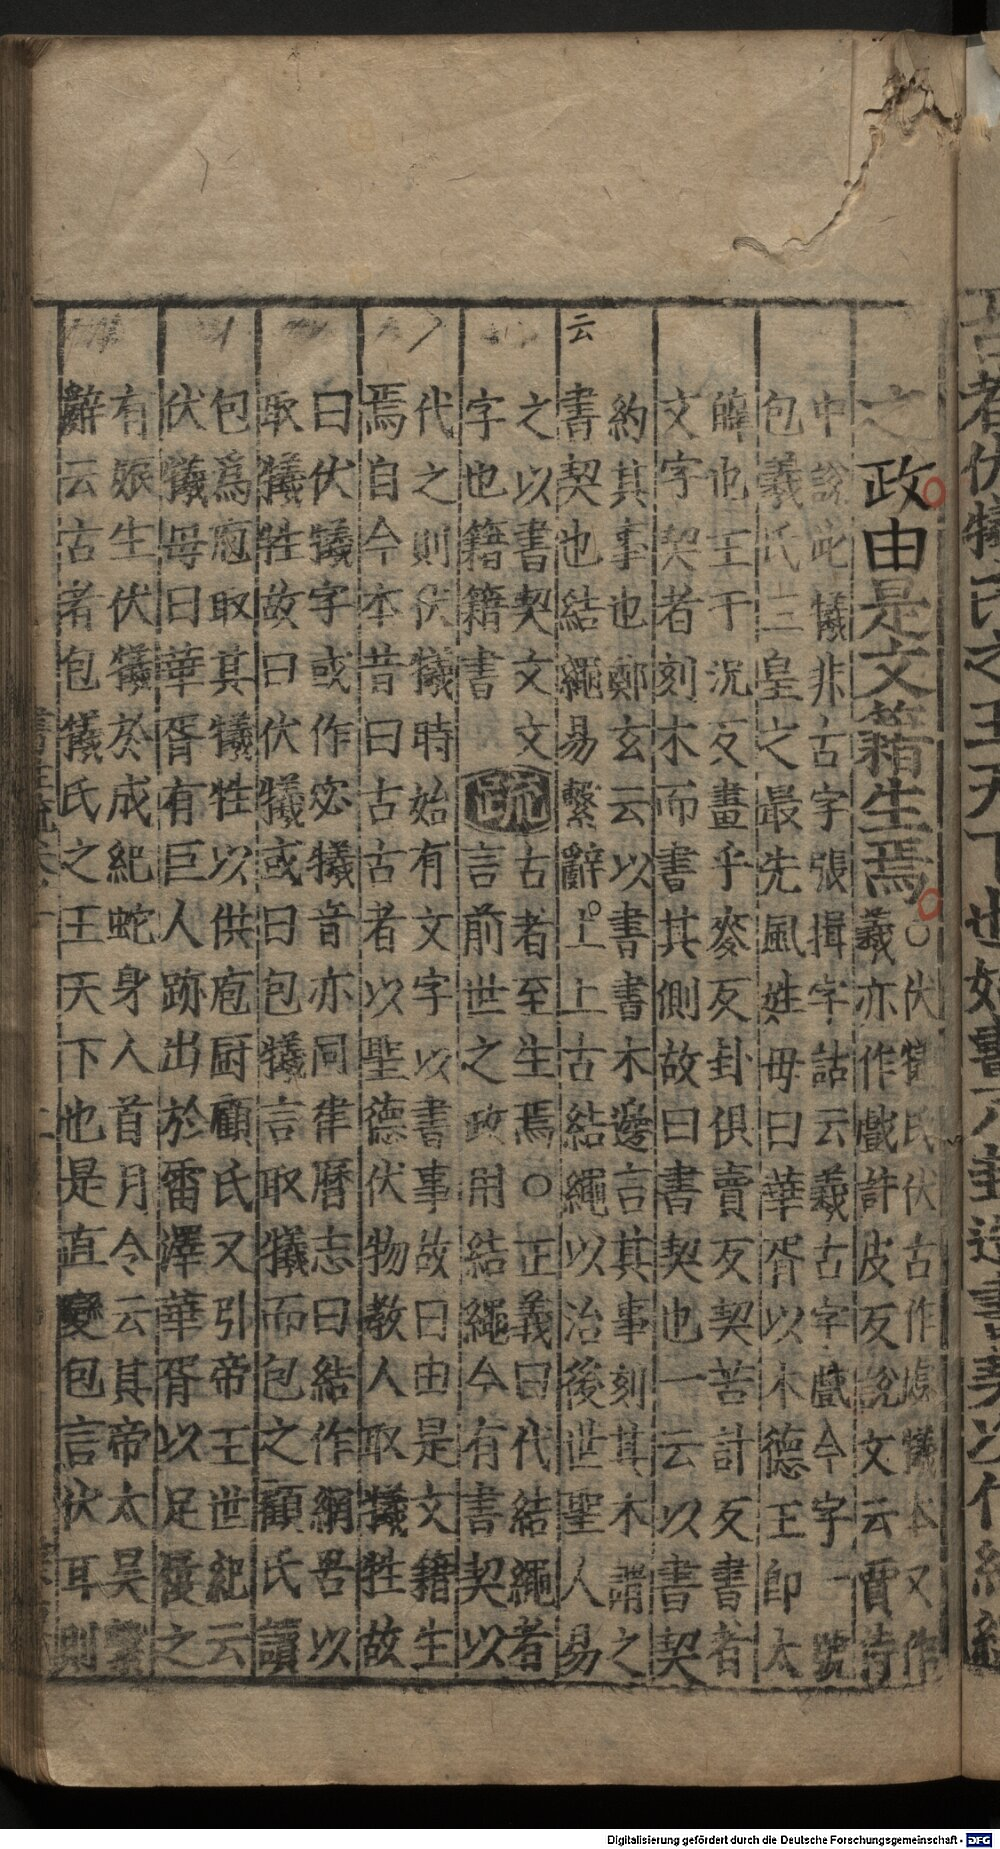 之政由是文籍生焉
○伏犧氏伏古作虙犧本又作
羲亦作戲許皮反說文云賈侍
中說此犧非古字張揖字詁云羲古字戲今字一號
包羲氏三皇之最先風姓母曰華胥以木德王卽太
皥也王于況反畫乎麥反卦俱賣反契苦計反書者
文字契者刻木而書其側故曰書契也一云以書契
約其事也鄭玄云以書書木邊言其事刻其木謂之
書契也結繩易繫辭上上古結繩以治後世聖人易
云
之以書契文文疏古者至生焉○正義曰代結繩者
字也籍籍書言前世之政用結繩今有書契以
代之則伏犧時始有文字以書事故曰由是文籍生
焉自今本昔曰古古者以聖德伏物教人取犧牲故
曰伏犧字或作宓犧音亦同律曆志曰結作網罟以
取犧牲故曰伏犧或曰包犧言取犧而包之顧氏讀
包爲庖取其犧牲以供庖厨顧氏又引帝王世紀云
伏犧母曰華胥有巨人跡出於雷澤華胥以足履之
有娠生伏犧於成紀蛇身人首月令云其帝太昊繫
辭云古者包犧氏之王天下也是直變包言伏耳則
Digitalisierung gefördert durch die Deutsche Forschungsgemeinschaft - DFG